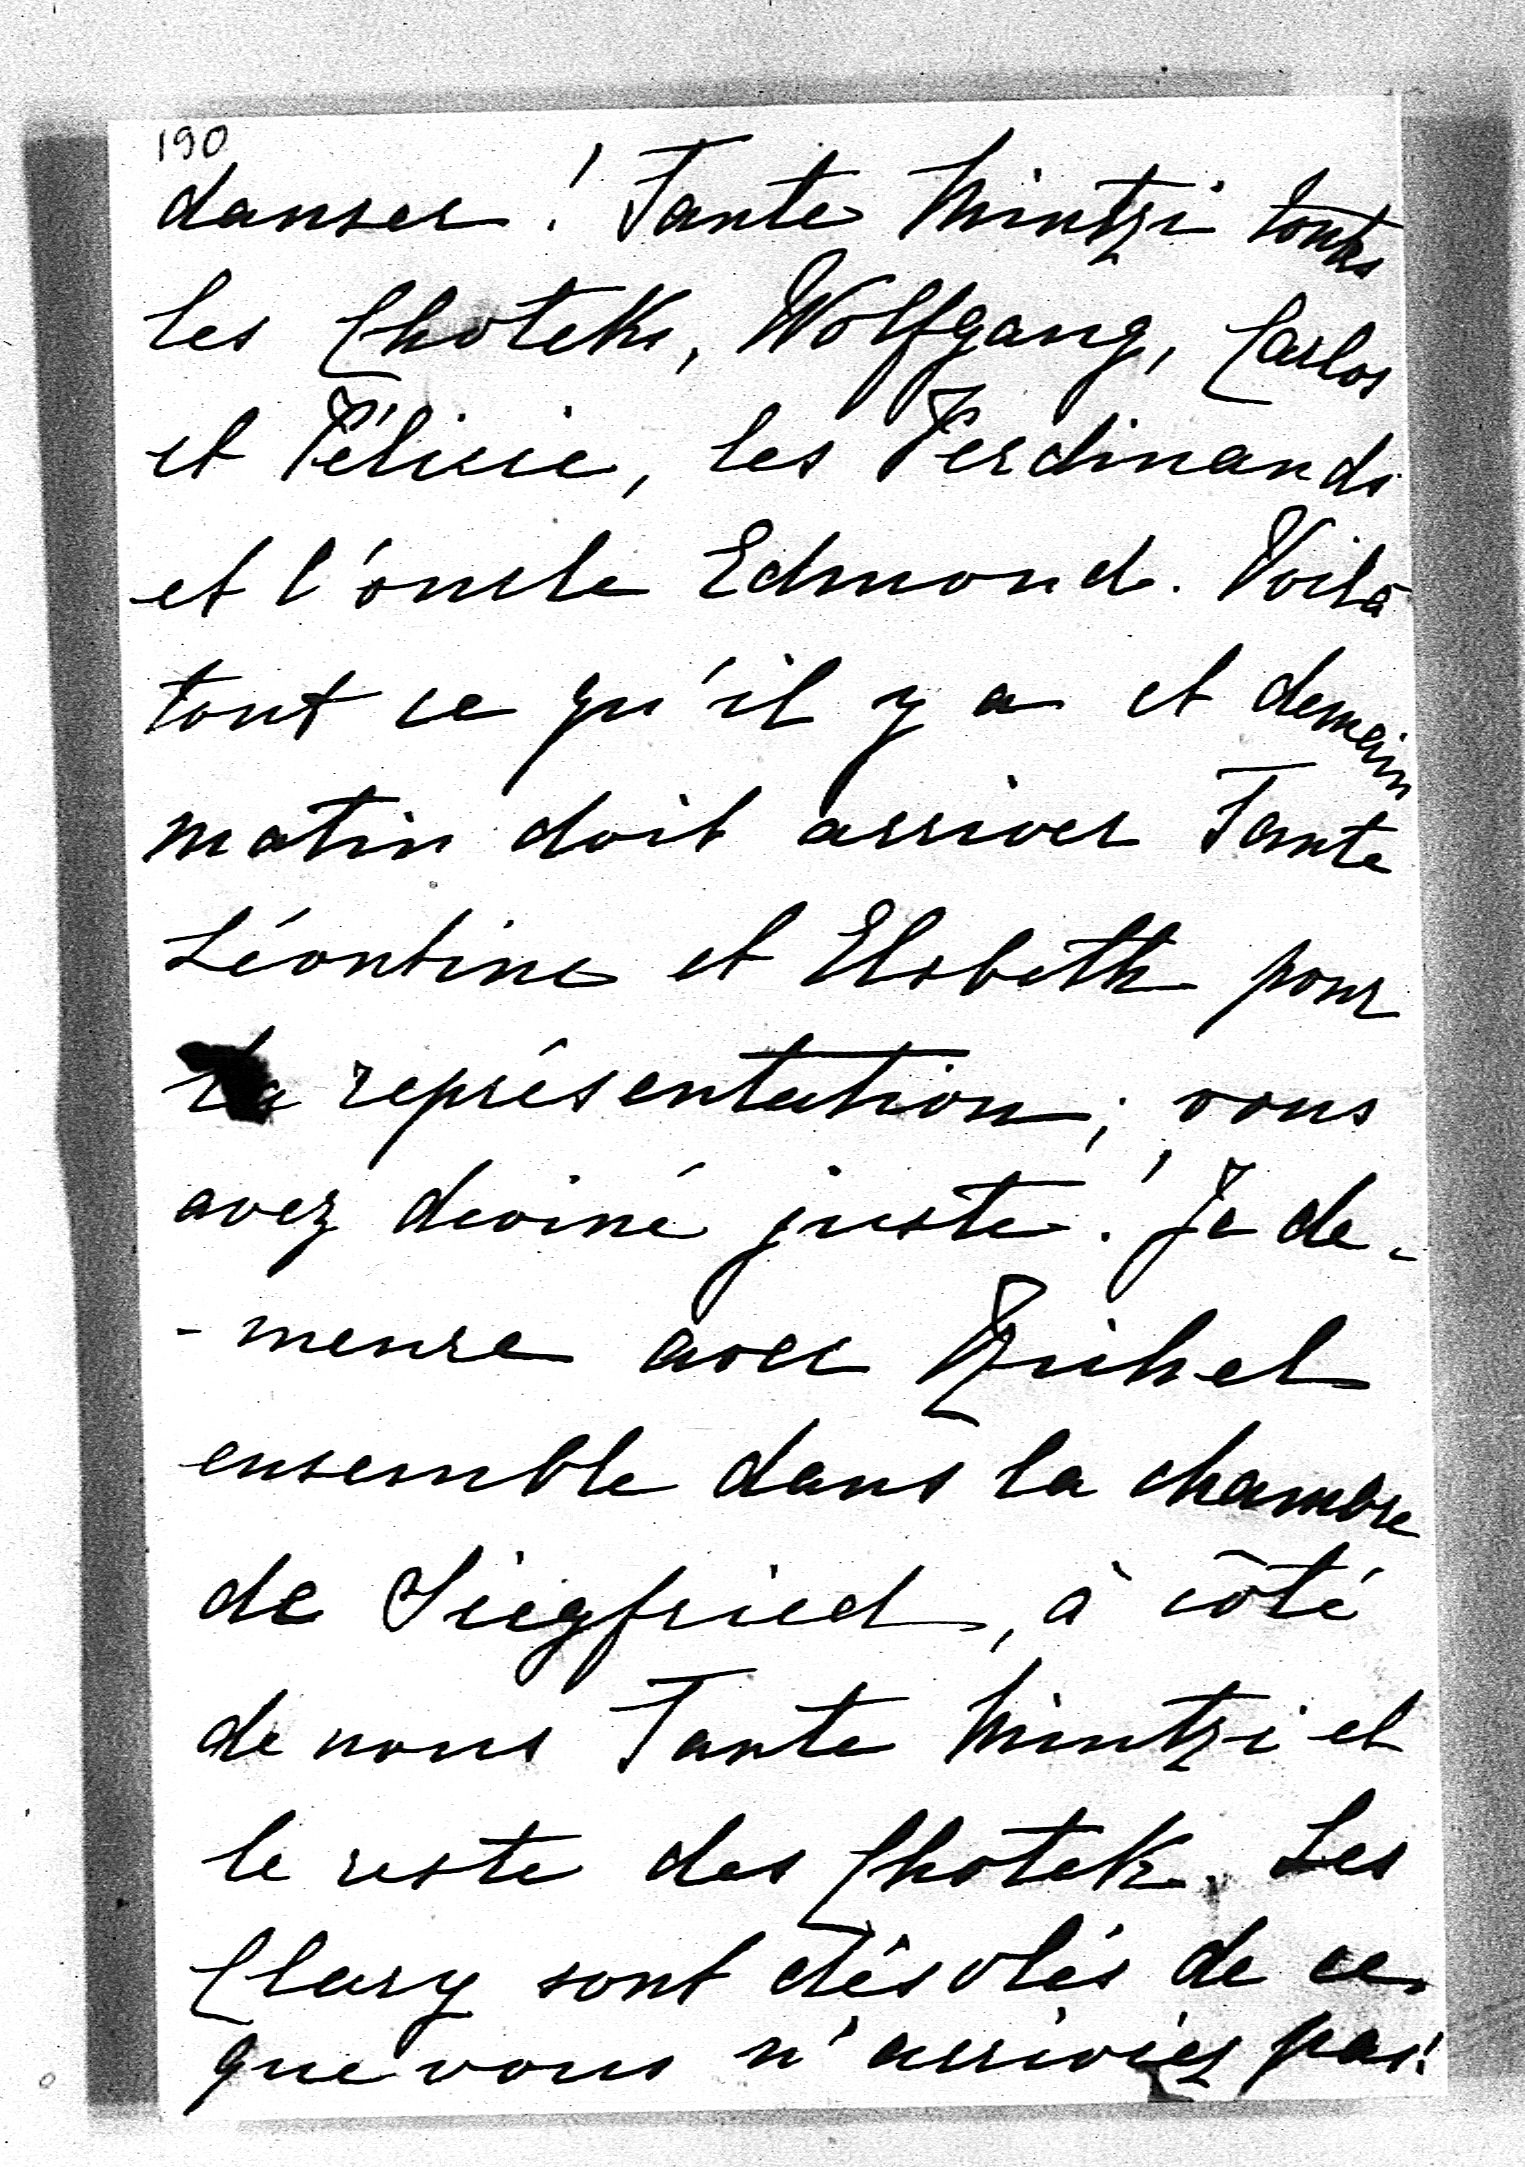 190
danser! Tante Mintzi toutes
les Choteks, Wolfgang, Carlos
et Félicie, les Ferdinands
et l'oncle Edmond. Voilà
tout ce qu'il y a et demain
matin doit arriver Tante
Léontine et Elsbeth pour
la représentation; vous
avez deviné juste! Je de-
-meure avec
ensemble dans la chambre
de Siegfried, à côté
de nous Tante Mintzi et
le reste des Chotek. Les
Clary sont désolés de ce
que vous n'arriviez pas!